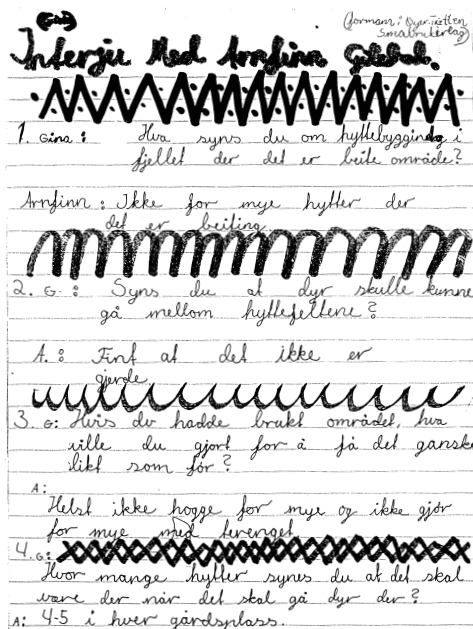 (formann i Øyer-Tretten
Småbrukerlag)
Intervju Med Arnfinn
1. Gina: Hva syns du om hyttebygging i
fjellet der det er beite område?
Arnfinn: Ikke for mye hytter der
det er beiting
2. G.: Syns du at dyr skulle kunne
gå mellom hyttefeltene?
A.: Fint at det ikke er
gjerde
3. G: Hvis du hadde brukt området, hva
ville du gjort for å få det ganske
likt som før?
A:
Helst ikke hogge for mye og ikke gjør
for mye med terenget
4. G:
Hvor mange hytter synes du at det skal
være der når det skal gå dyr der?
A: 4-5 i hver gårdsplass.